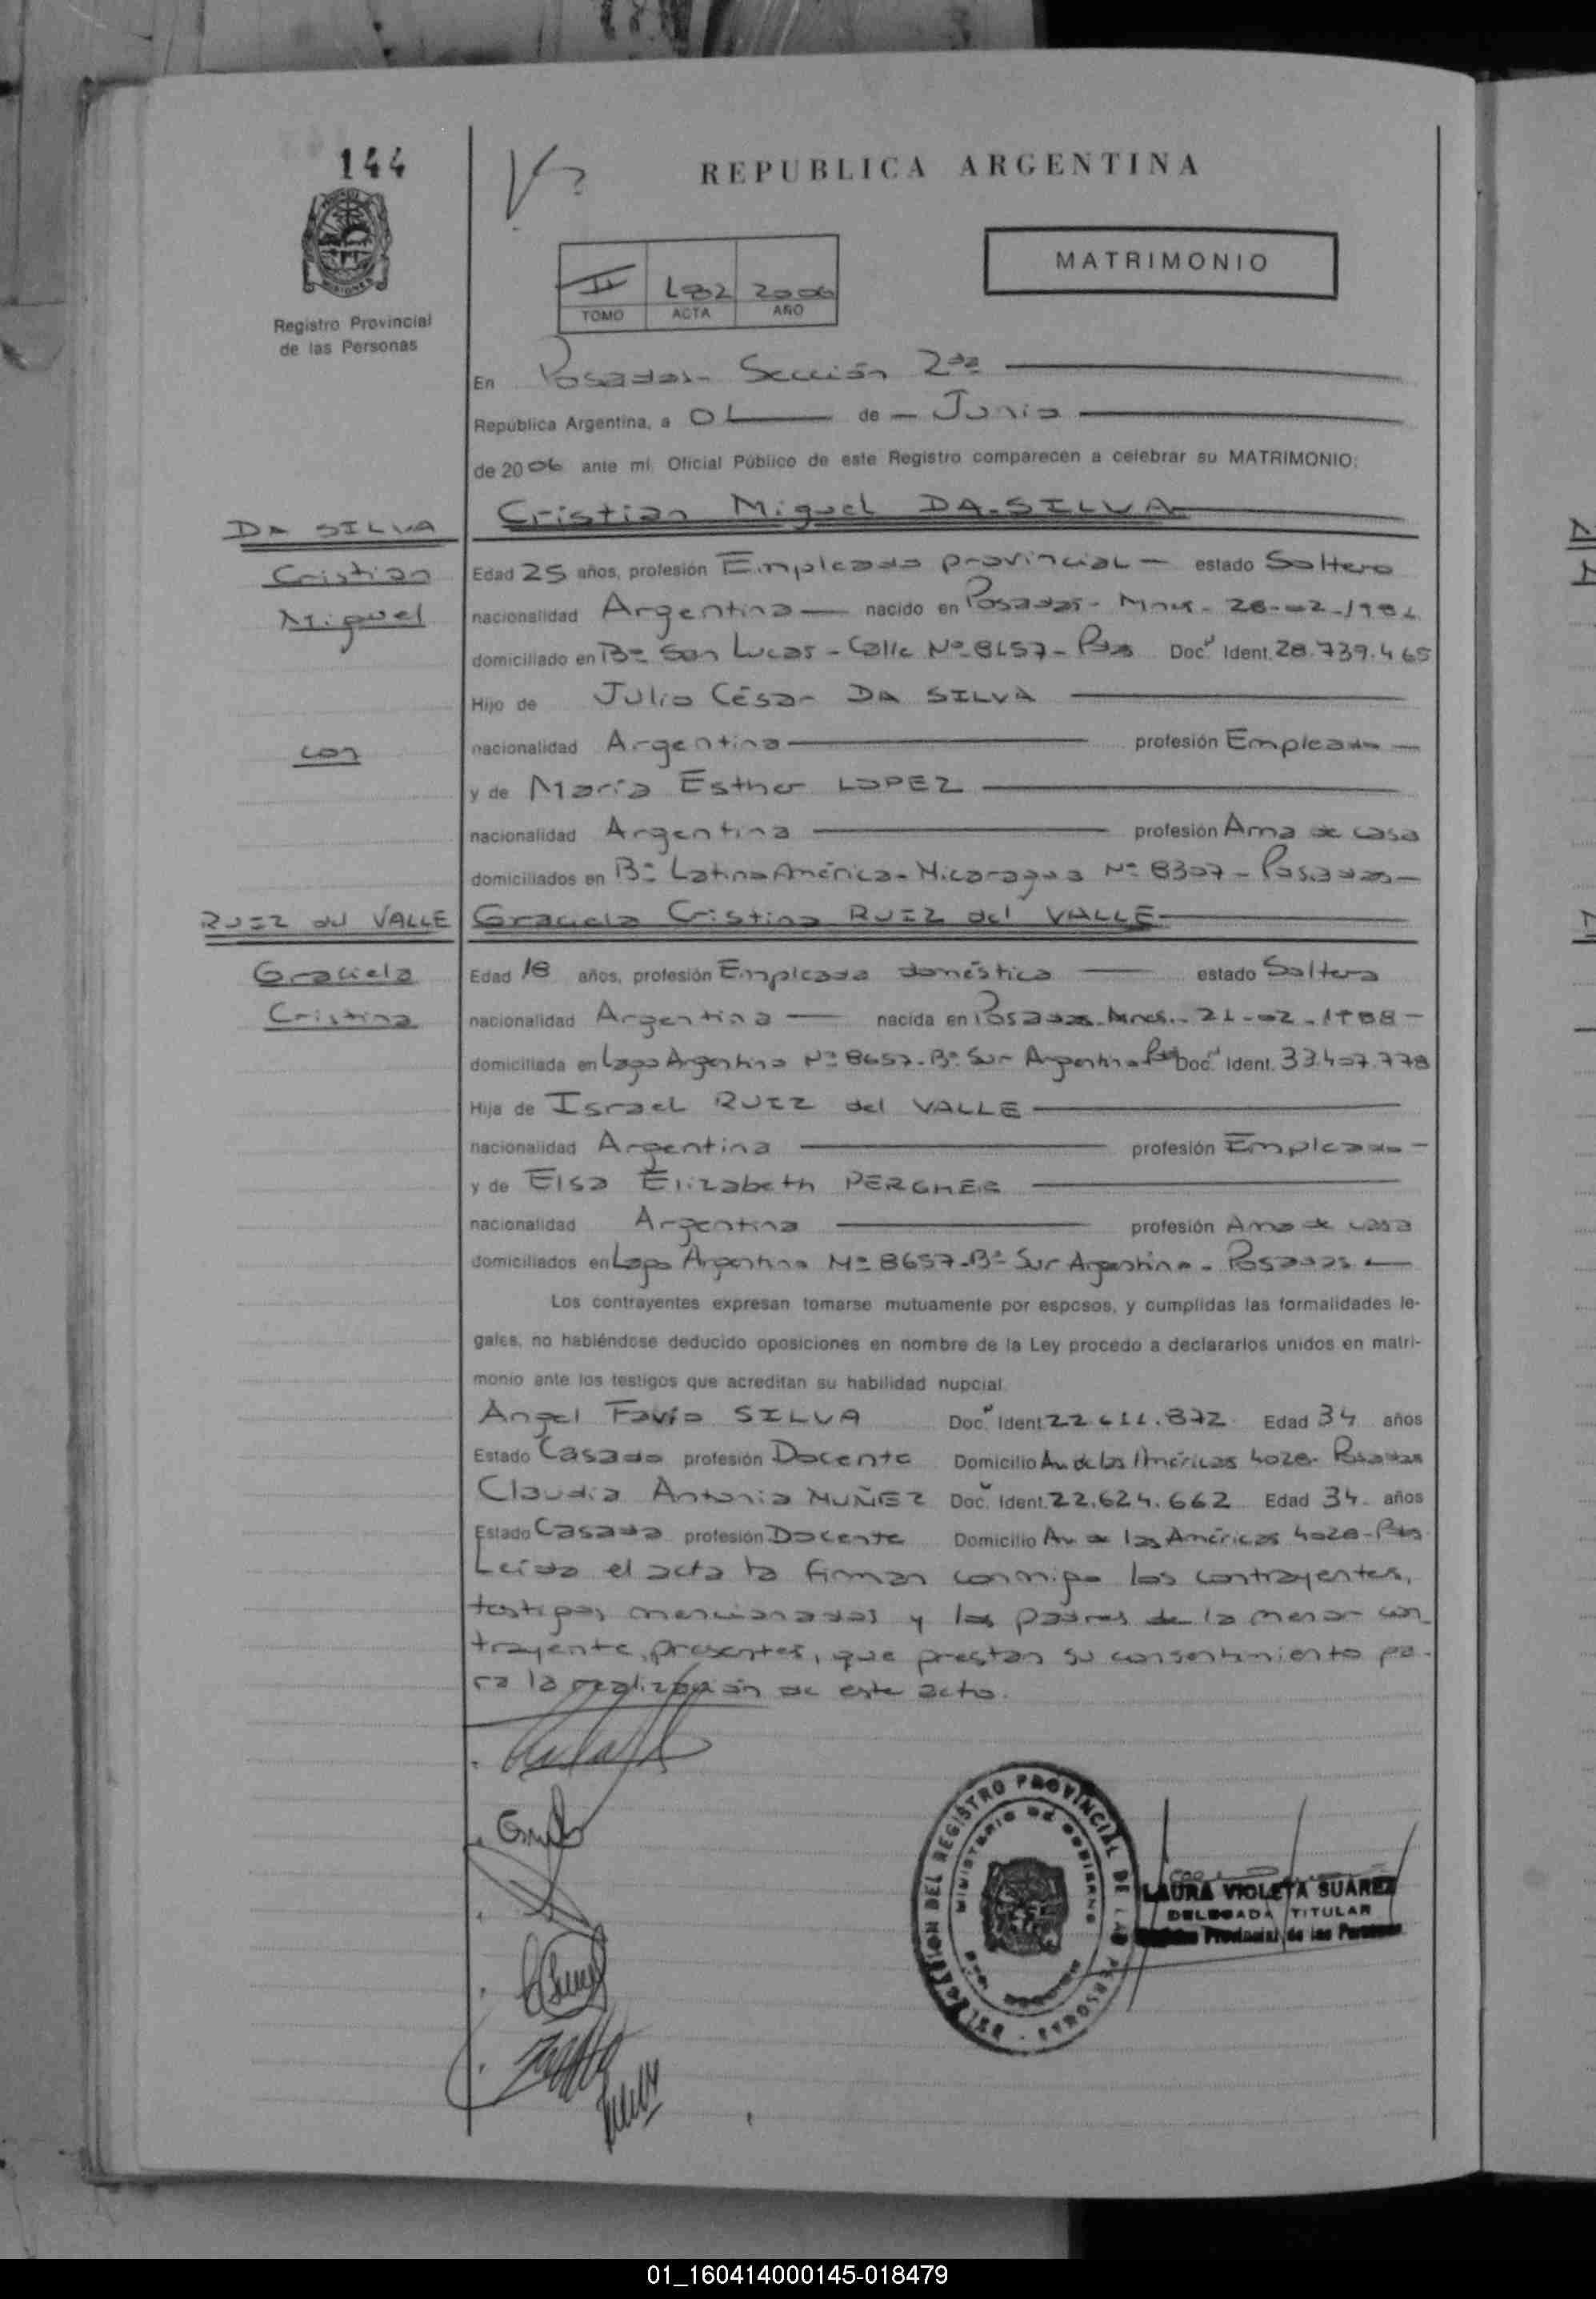 144
REPUBLICA ARGENTINA
MATRIMONIO
II 182 2006
TOMO ACTA AÑO
Registro Provincial
de las Personas
En Posadas - Sección 2da
República Argentina, a 01 de Junio
de 2006 ante mi Oficial Público de este Registro comparecen a celebrar su MATRIMONIO:
DA SILVA
Cristian
Miguel
con
RUIZ del VALLE
Graciela
Cristina
Cristian Miguel DA SILVA
Edad 25 años, profesión Empleado provincial estado Soltero
nacionalidad Argentina nacido en Posadas - Mnes - 28-02-1981
domiciliado en Bº San Lucas - Calle Nº 8157 - Pdas Doc. Ident. 28.739.465
Hijo de Julio César DA SILVA
nacionalidad Argentina profesión Empleado
y de María Esther LOPEZ
nacionalidad Argentina profesión Ama de casa
domiciliados en Bº Latino América - Nicaragua Nº 8307 - Posadas
Graciela Cristina RUIZ del VALLE
Edad 18 años, profesión Empleada doméstica estado Soltera
nacionalidad Argentina nacida en Posadas - Mnes. - 21-02-1988
domiciliada en Lago Argentino Nº 8657 - Bº Sur Argentino Pdas Doc. Ident. 33.407.778
Hija de Israel RUIZ del VALLE
nacionalidad Argentina profesión Empleado
y de Elsa Elizabeth PERGHER
nacionalidad Argentina profesión Ama de casa
domiciliados en Lago Argentino Nº 8657 - Bº Sur Argentino - Posadas
Los contrayentes expresan tomarse mutuamente por esposos, y cumplidas las formalidades le-
gales, no habiéndose deducido oposiciones en nombre de la Ley procedo a declararlos unidos en matri-
monio ante los testigos que acreditan su habilidad nupcial.
Angel Favio SILVA Doc. Ident. 22.611.872 Edad 34 años
Estado Casado profesión Docente Domicilio Av. de las Américas 4028 - Posadas
Claudia Antonia NUÑEZ Doc. Ident. 22.624.662 Edad 34 años
Estado Casada profesión Docente Domicilio Av de las Américas 4028 - Pdas
Leída el acta la firman conmigo los contrayentes,
testigos mencionados y los padres de la menor con_
trayente, presentes, que prestan su consentimiento pa-
ra la realización de este acto.
DELEGACION DEL REGISTRO PROVINCIAL DE LAS PERSONAS
MINISTERIO DE GOBIERNO
LAURA VIOLETA SUAREZ
DELEGADA TITULAR
Registro Provincial de las Personas
01_160414000145-018479